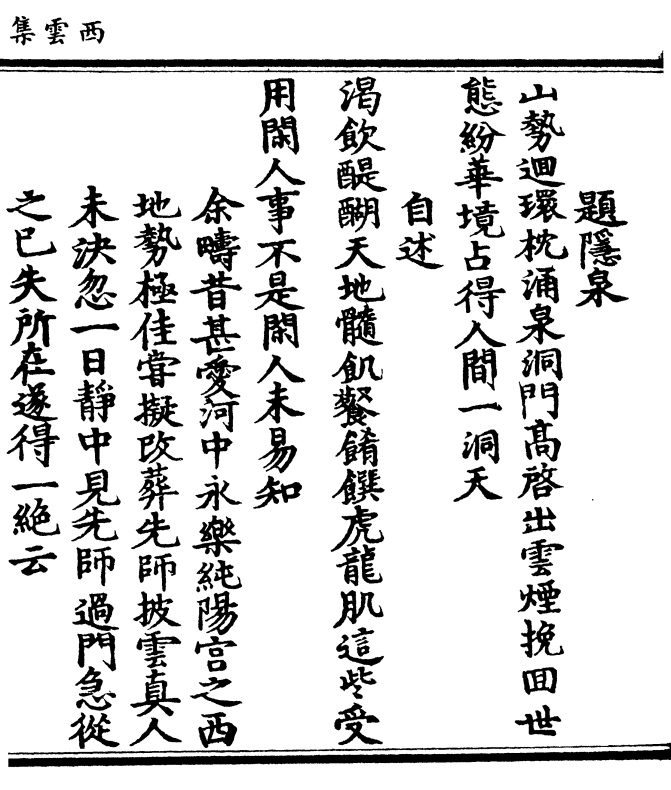 西雲集
題隱泉
山勢迴環枕涌泉洞門髙啓出雲煙挽回世
態紛華境占得人間一洞天
自述
渴飲醍醐天地髓飢餐餚饌虎龍肌這些受
用閑人事不是閑人未易知
余疇昔甚愛河中永樂純陽宮之西
地勢極佳嘗擬改葬先師披雲真人
未決忽一日静中見先師過門急從
之已失所在遂得一絶云